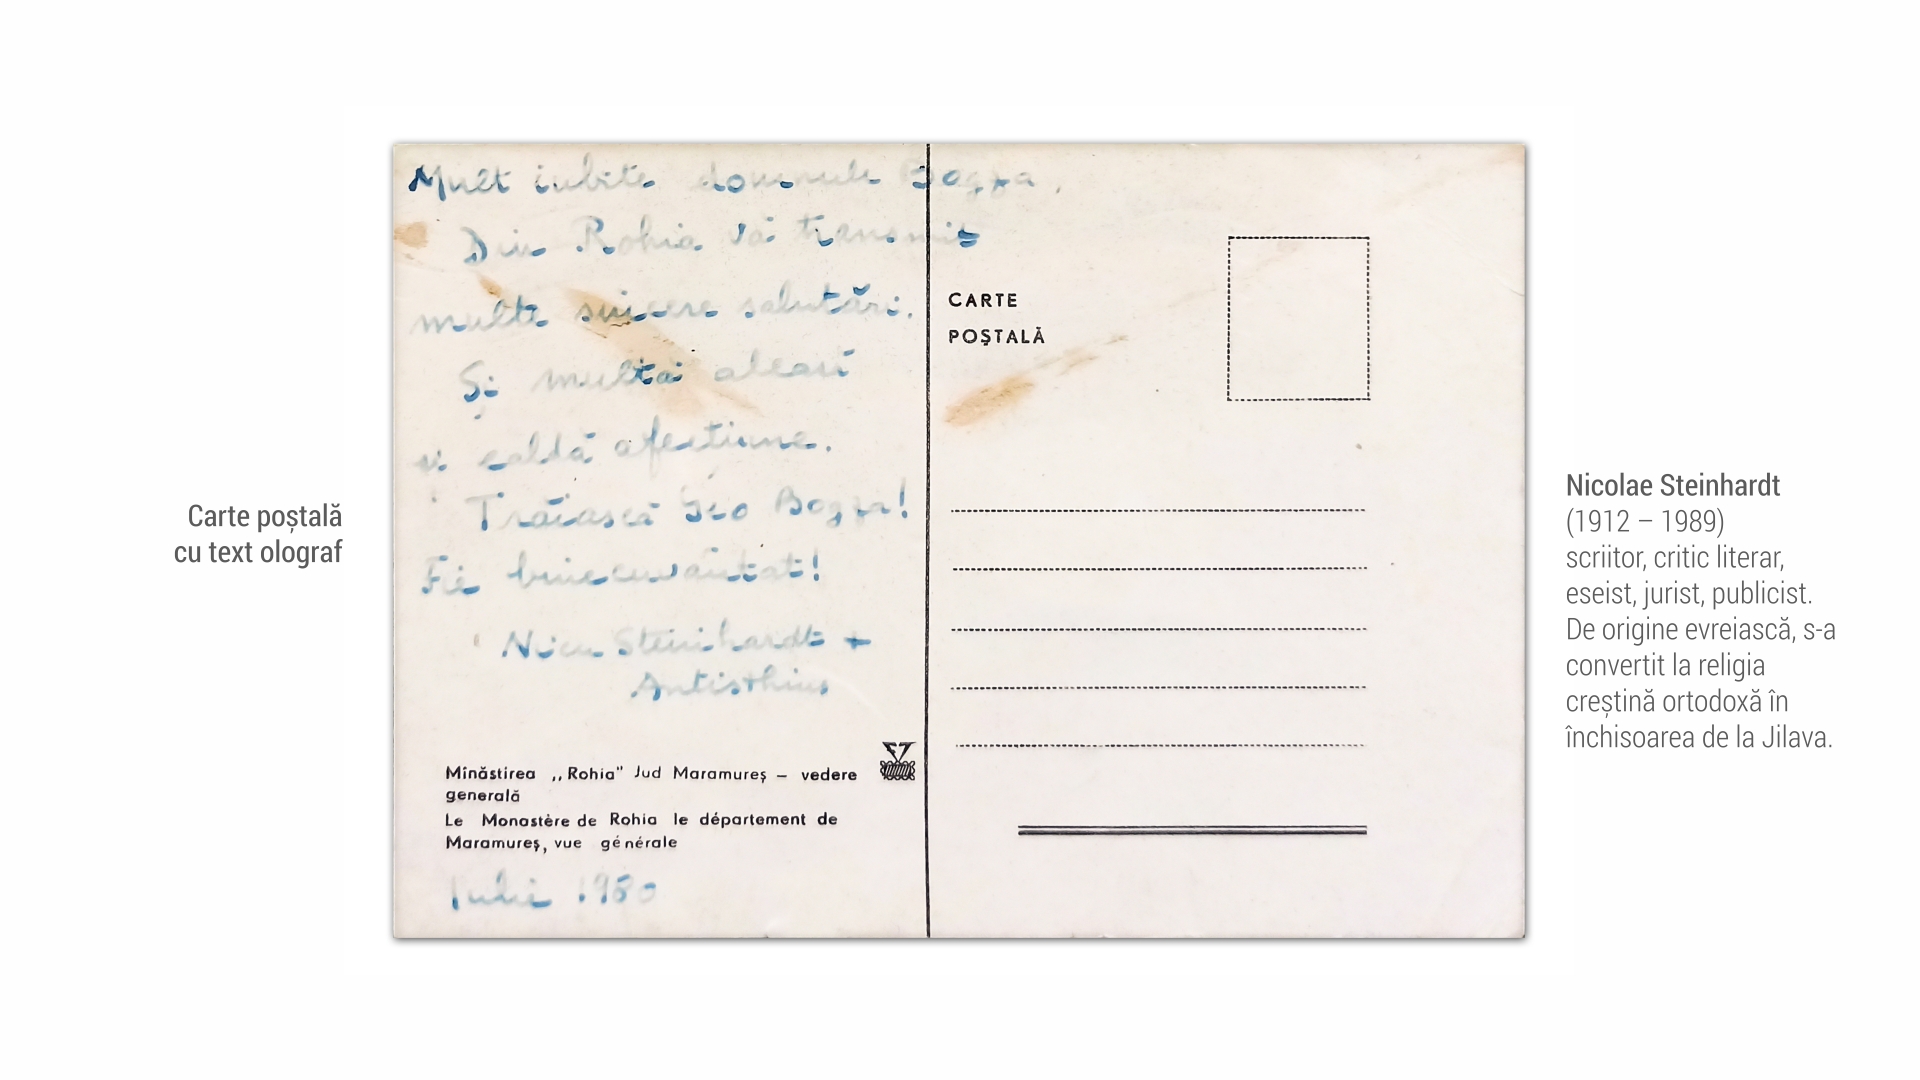 Carte poștală
cu text olograf
Mult iubite domnule Bogza,
Din Rohia vă transmit
multe sincere salutări.
Și multă aleasă
și caldă afecțiune.
Trăiască Geo Bogza!
Fie binecuvântat!
Nicu Steinhardt +
Mînăstirea ,,Rohia" Jud Maramureș – vedere
generală
Le Monastère de Rohia le département de
Maramureș, vue générale
Iulie 1980
CARTE
POȘTALĂ
Nicolae Steinhardt
(1912 – 1989)
scriitor, critic literar,
eseist, jurist, publicist.
De origine evreiască, s-a
convertit la religia
creștină ortodoxă în
închisoarea de la Jilava.